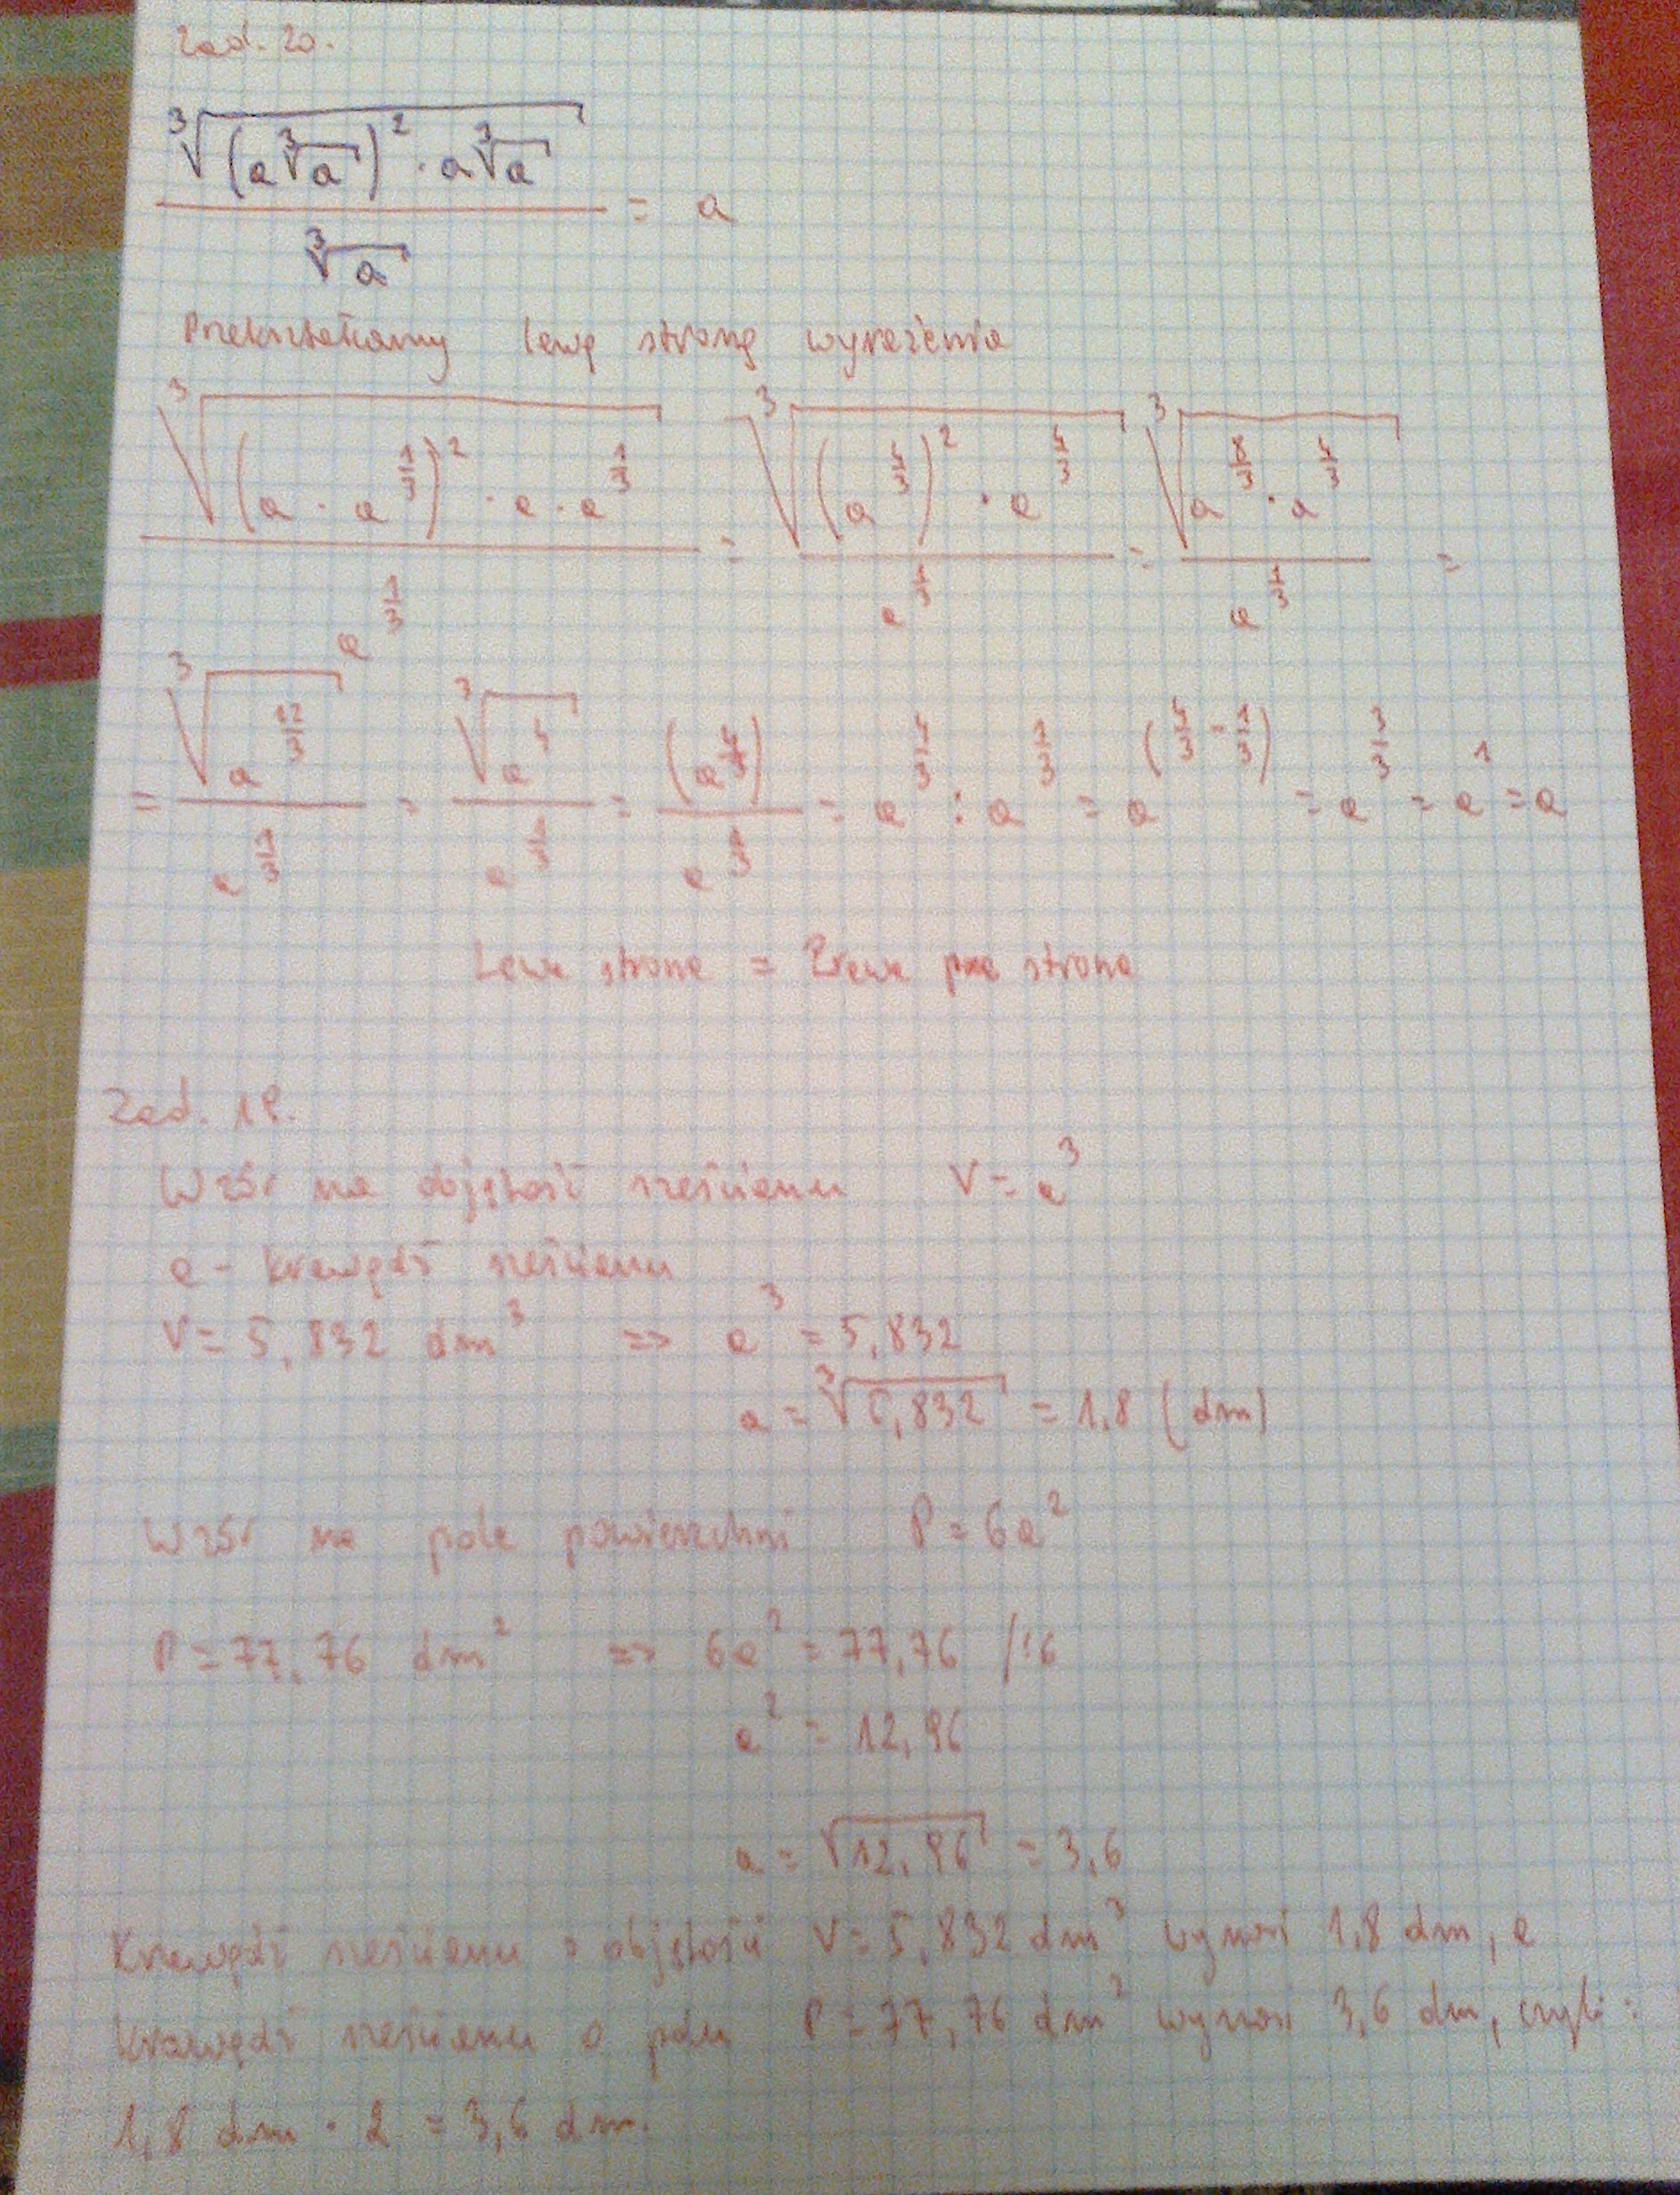 Zad. 20.
∛((a∛a)² · a∛a) / ∛a = a
Przekształcamy lewą stronę wyrażenia
∛((a · a^(1/3))² · a · a^(1/3)) / a^(1/3) = ∛((a^(4/3))² · a^(4/3)) / a^(1/3) = ∛(a^(8/3) · a^(4/3)) / a^(1/3) =
= ∛(a^(12/3)) / a^(1/3) = ∛(a⁴) / a^(1/3) = (a^(4/3)) / a^(1/3) = a^(4/3) : a^(1/3) = a^(4/3 - 1/3) = a^(3/3) = a¹ = a
Lewa strona = Prawa strona
Wzór na objętość sześcianu V = a³
a - krawędź sześcianu
V = 5,832 dm³ => a³ = 5,832
a = ∛5,832 = 1,8 (dm)
Wzór na pole powierzchni P = 6a²
P = 77,76 dm² => 6a² = 77,76 /:6
a² = 12,96
a = √12,96 = 3,6
Krawędź sześcianu o objętości V = 5,832 dm³ wynosi 1,8 dm, a
krawędź sześcianu o polu P = 77,76 dm² wynosi 3,6 dm, czyli:
1,8 dm · 2 = 3,6 dm.